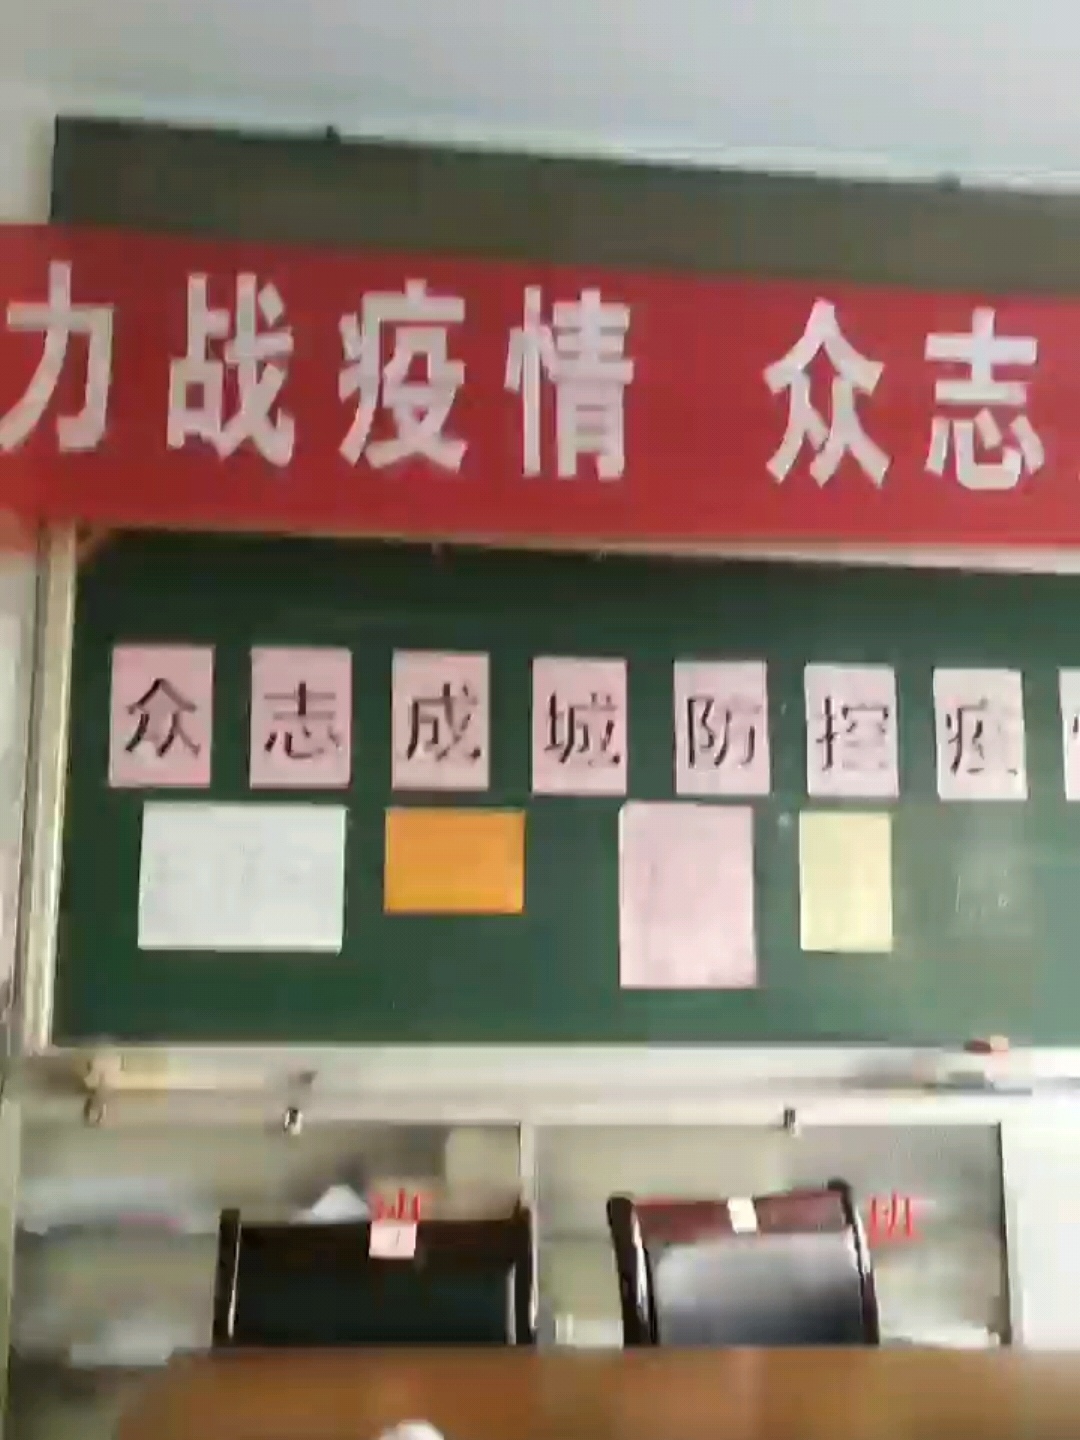 力战疫情 众志
众志成城防控疫
班
班